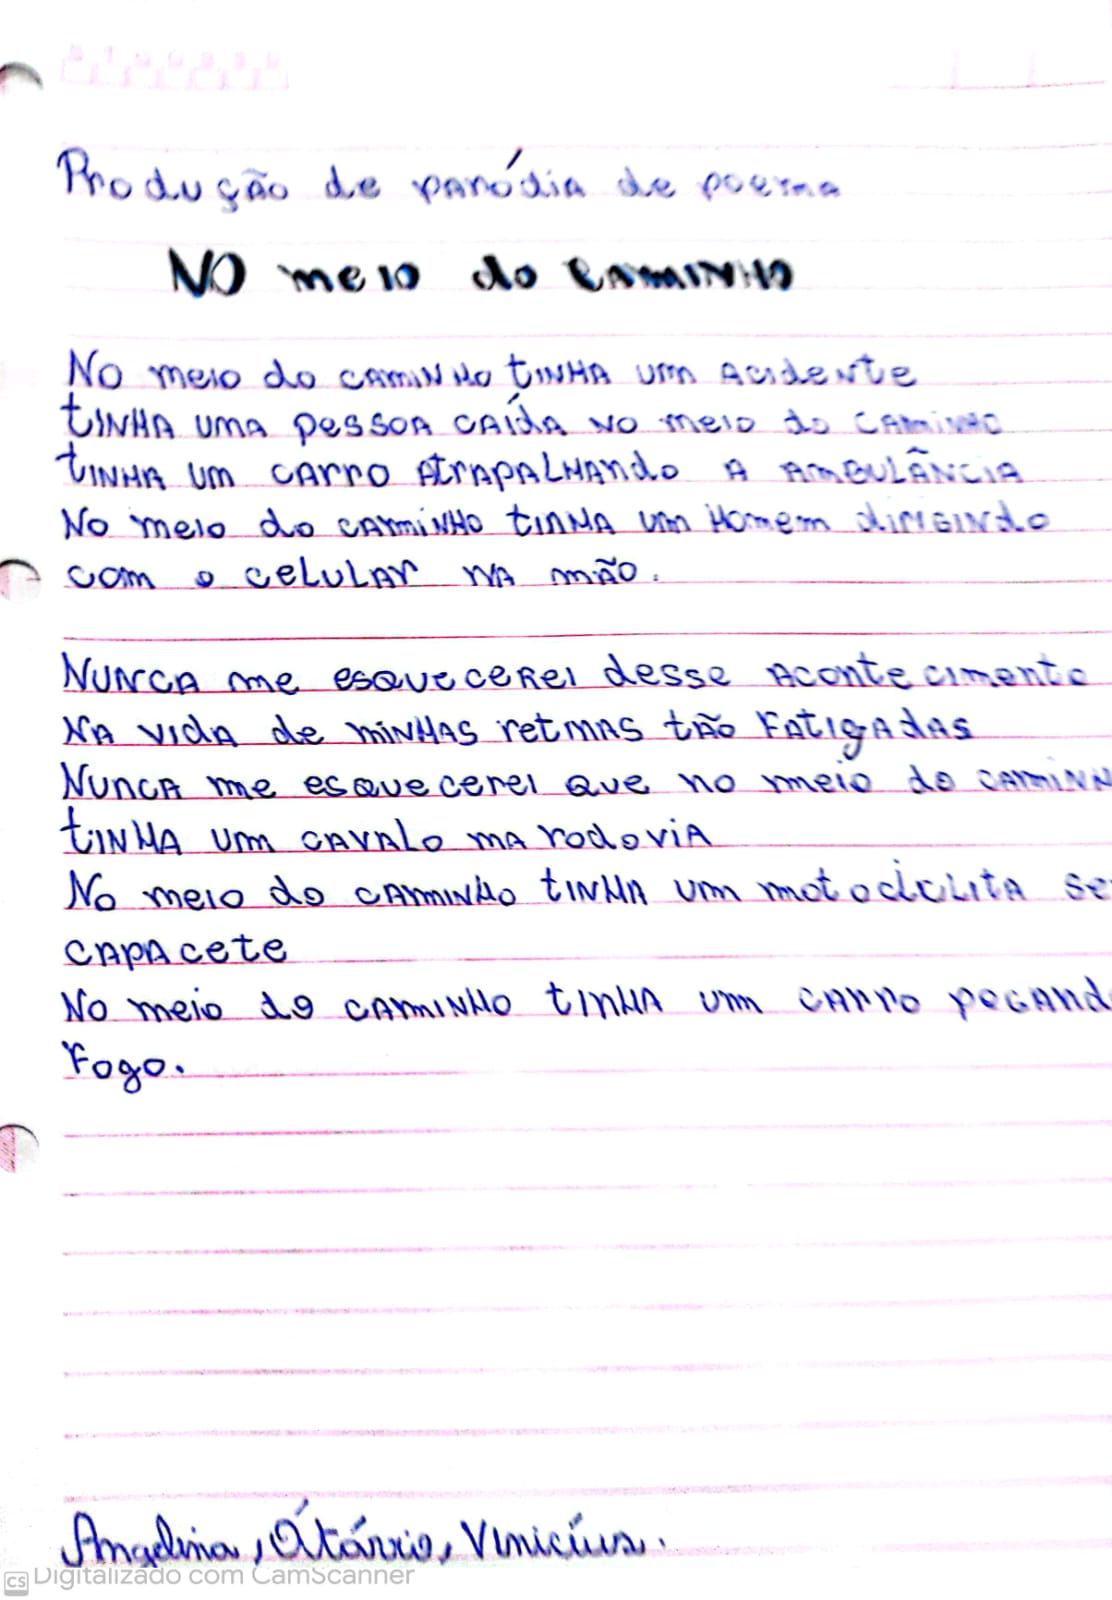 Produção de paródia de poema
No meio do caminho
No meio do caminho tinha um acidente
tinha uma pessoa caída no meio do caminho
tinha um carro atrapalhando a ambulância
No meio do caminho tinha um homem dirigindo
com o celular na mão.
Nunca me esquecerei desse acontecimento
Na vida de minhas retinas tão fatigadas
Nunca me esquecerei que no meio do caminh
tinha um cavalo na rodovia
No meio do caminho tinha um motociclita se
capacete
No meio do caminho tinha um carro pegand
fogo.
Angelina, Vinicíus.
CS Digitalizado com CamScanner